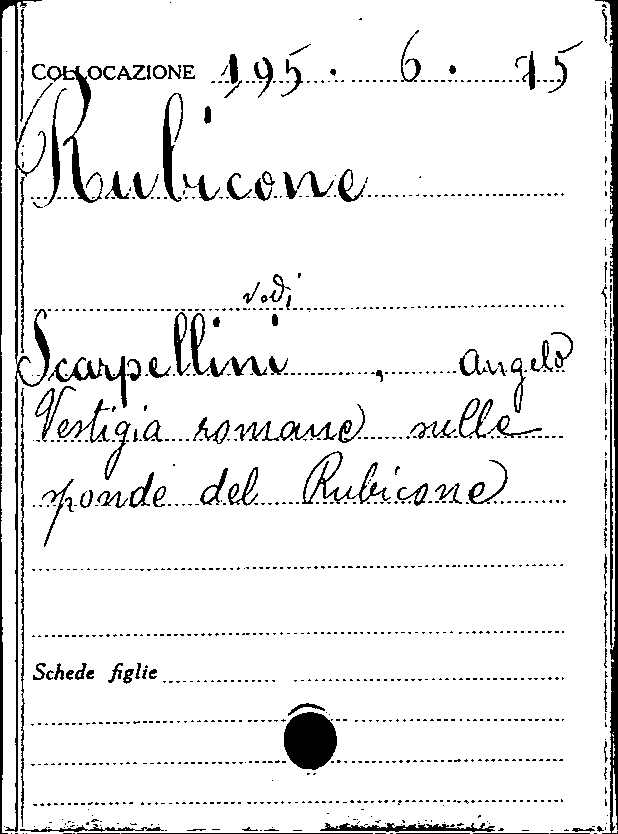 COLLOCAZIONE 195 . 6 . 75
Rubicone
vedi
Scarpellini , Angelo
Vestigia romane sulle
sponde del Rubicone
Schede figlie